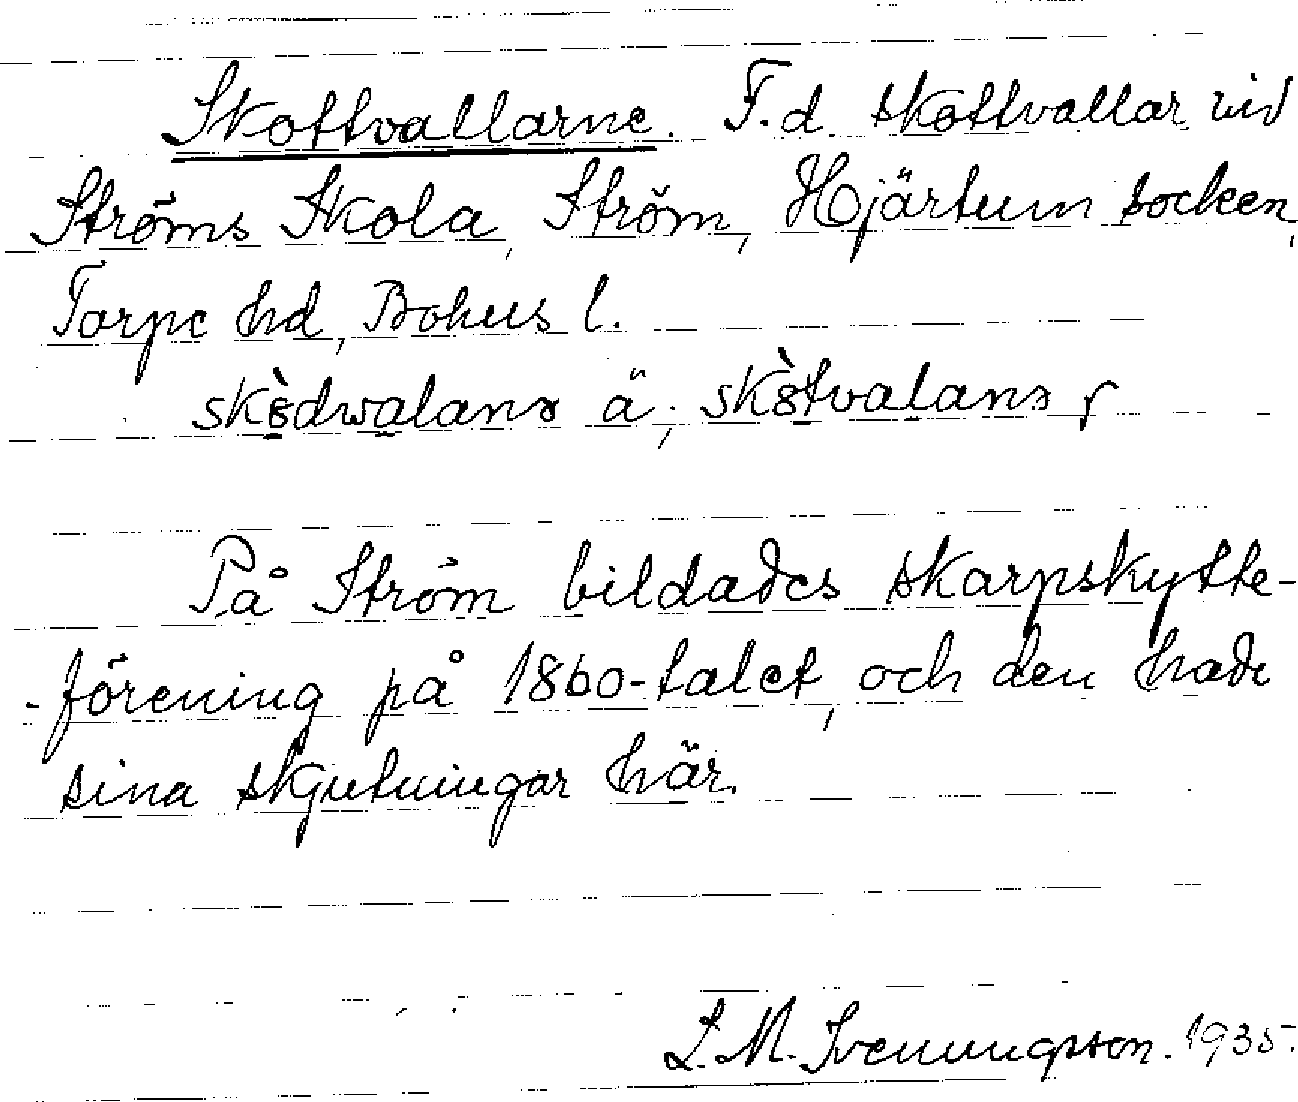 Skottvallarne. F.d. skottvallar vid
Ströms Skola, Ström, Hjärtum socken,
Torpe hd, Bohus l.
skòdwalanɘ ä; skòtvalanɘ y
På Ström bildades skarpskytte-
-förening på 1860-talet, och den hade
sina skjutningar här.
L. M. Svenungsson. 1935.